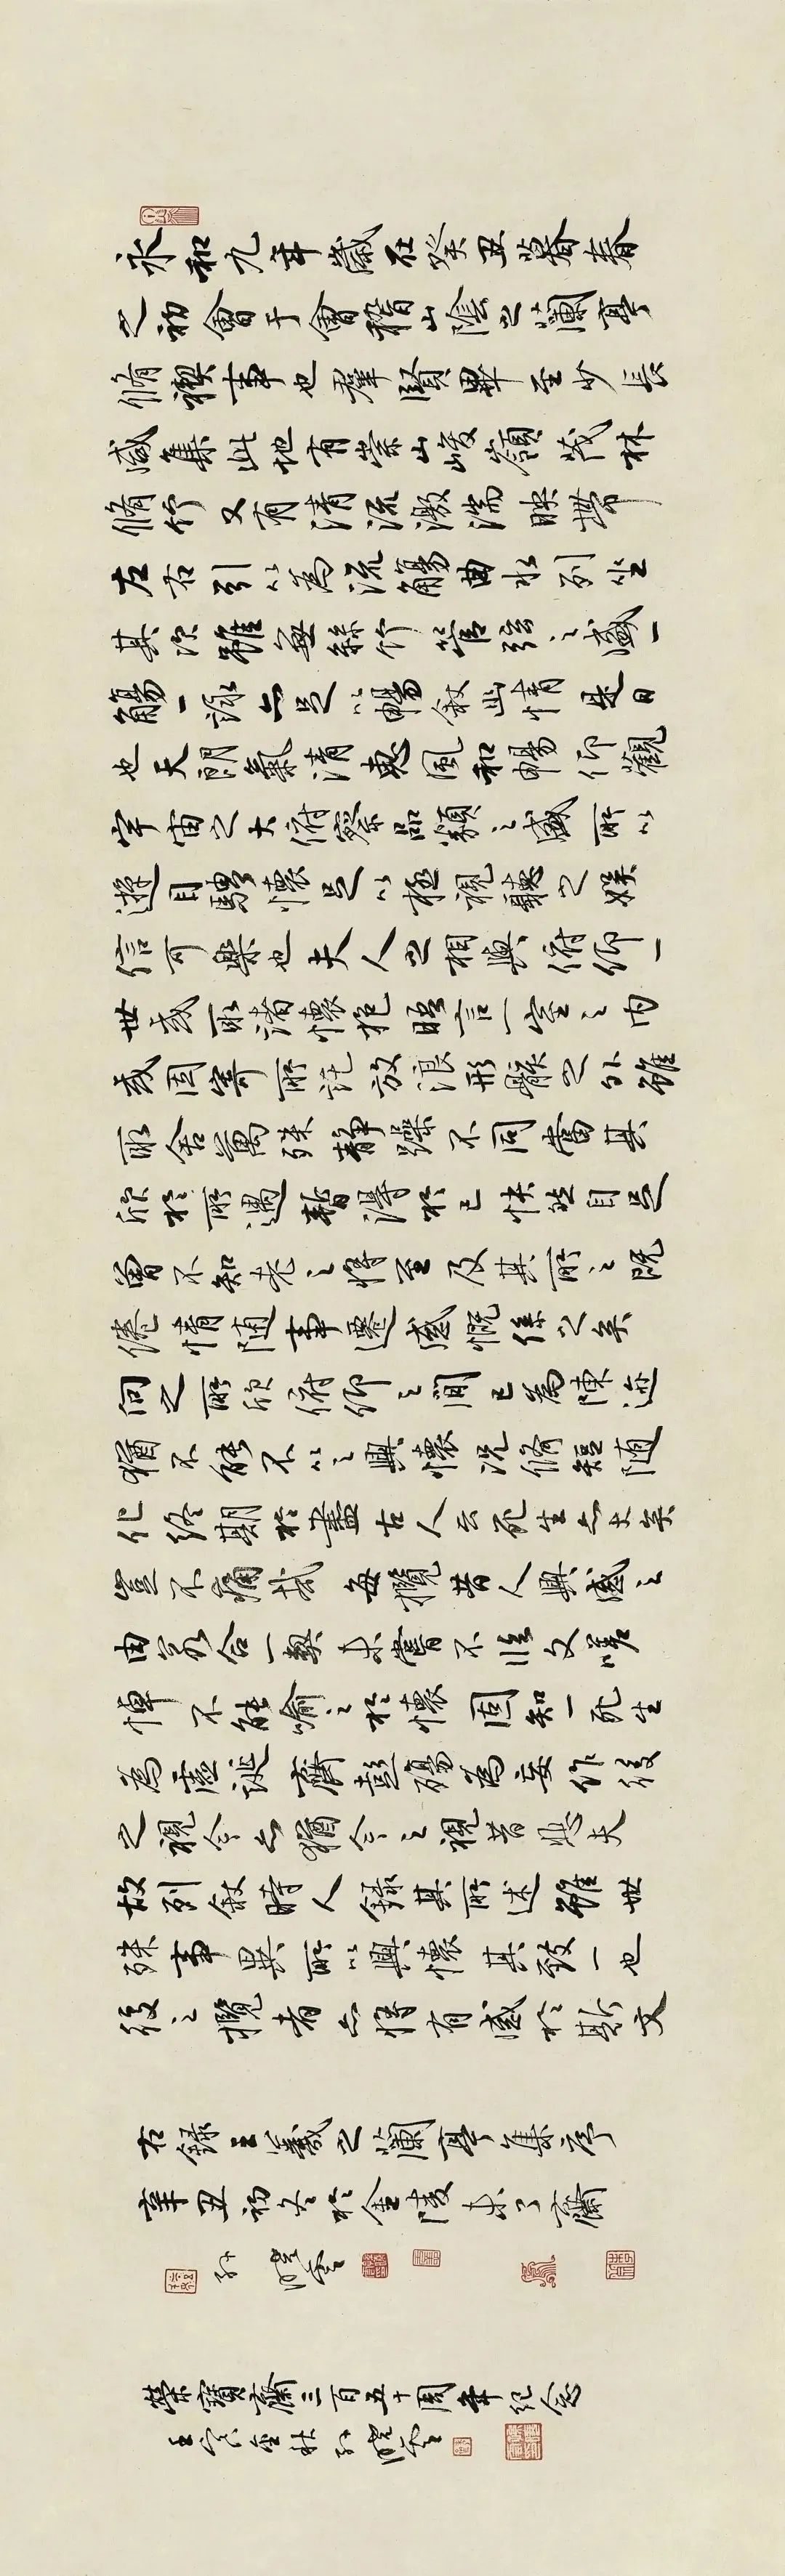 永和九年歲在癸丑暮春
之初會于會稽山陰之蘭亭
脩禊事也群賢畢至少長
咸集此地有崇山峻嶺茂林
脩竹又有清流激湍映帶
左右引以為流觴曲水列坐
其次雖無絲竹管弦之盛一
觴一詠亦足以暢敘幽情是日
也天朗氣清惠風和暢仰觀
宇宙之大俯察品類之盛所以
遊目騁懷足以極視聽之娛
信可樂也夫人之相與俯仰一
世或取諸懷抱晤言一室之內
或因寄所託放浪形骸之外雖
取舍萬殊靜躁不同當其
欣於所遇暫得於己快然自足
曾不知老之將至及其所之既
倦情隨事遷感慨係之矣
向之所欣俯仰之間已為陳迹
猶不能不以之興懷況脩短隨
化終期於盡古人云死生亦大矣
豈不痛哉每攬昔人興感之
由若合一契未嘗不臨文嗟
悼不能喻之於懷固知一死生
為虛誕齊彭殤為妄作後
之視今亦猶今之視昔悲夫
故列敘時人錄其所述雖世
殊事異所以興懷其致一也
後之攬者亦將有感於斯文
右錄王羲之蘭亭集序
辛丑初冬於金陵未了齋
孫曉雲
榮寶齋三百五十周年紀念
壬寅金秋孫曉雲